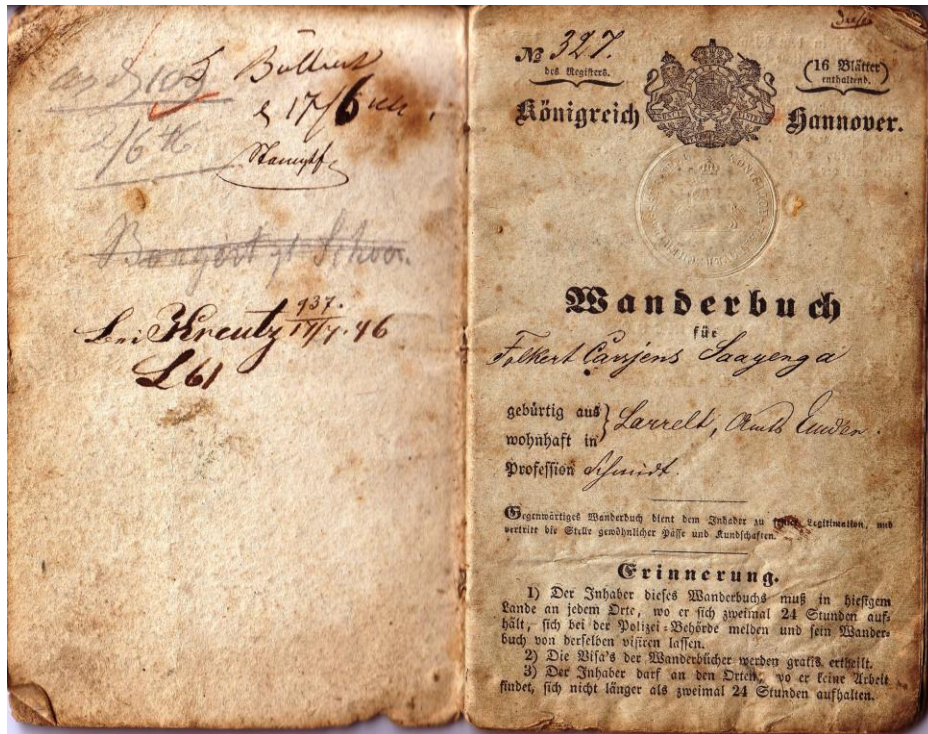 Böttner
17/6
Stampf
2/6 46
Bei Kreutz 937.
17/7. 46
L61
№ 327.
des Registers.
(16 Blätter
enthaltend.)
Königreich Hannover.
Wanderbuch
für
Folkert Carsjens Saayenga
gebürtig aus
wohnhaft in
} Larrelt, Amts Emden.
Profession Schmidt.
Gegenwärtiges Wanderbuch dient dem Inhaber zu seiner Legitimation, und
vertritt die Stelle gewöhnlicher Pässe und Kundschaften.
Erinnerung.
1) Der Inhaber dieses Wanderbuchs muß in hiesigem
Lande an jedem Orte, wo er sich zweimal 24 Stunden auf-
hält, sich bei der Polizei-Behörde melden und sein Wander-
buch von derselben visiren lassen.
2) Die Visa's der Wanderbücher werden gratis ertheilt.
3) Der Inhaber darf an den Orten, wo er keine Arbeit
findet, sich nicht länger als zweimal 24 Stunden aufhalten.